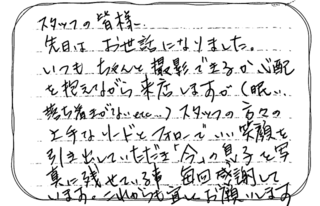 スタッフの皆様へ
先日は お世話になりました。
いつも ちゃんと 撮影できるか 心配
を抱えながら 来店しますが (眠い…
落ち着きがない etc…) スタッフの方々の
上手なリードとフォローで いい 笑顔を
引き出していただき「今」の息子を写
真に残せている事 毎回感謝して
います。これからも宜しくお願いします